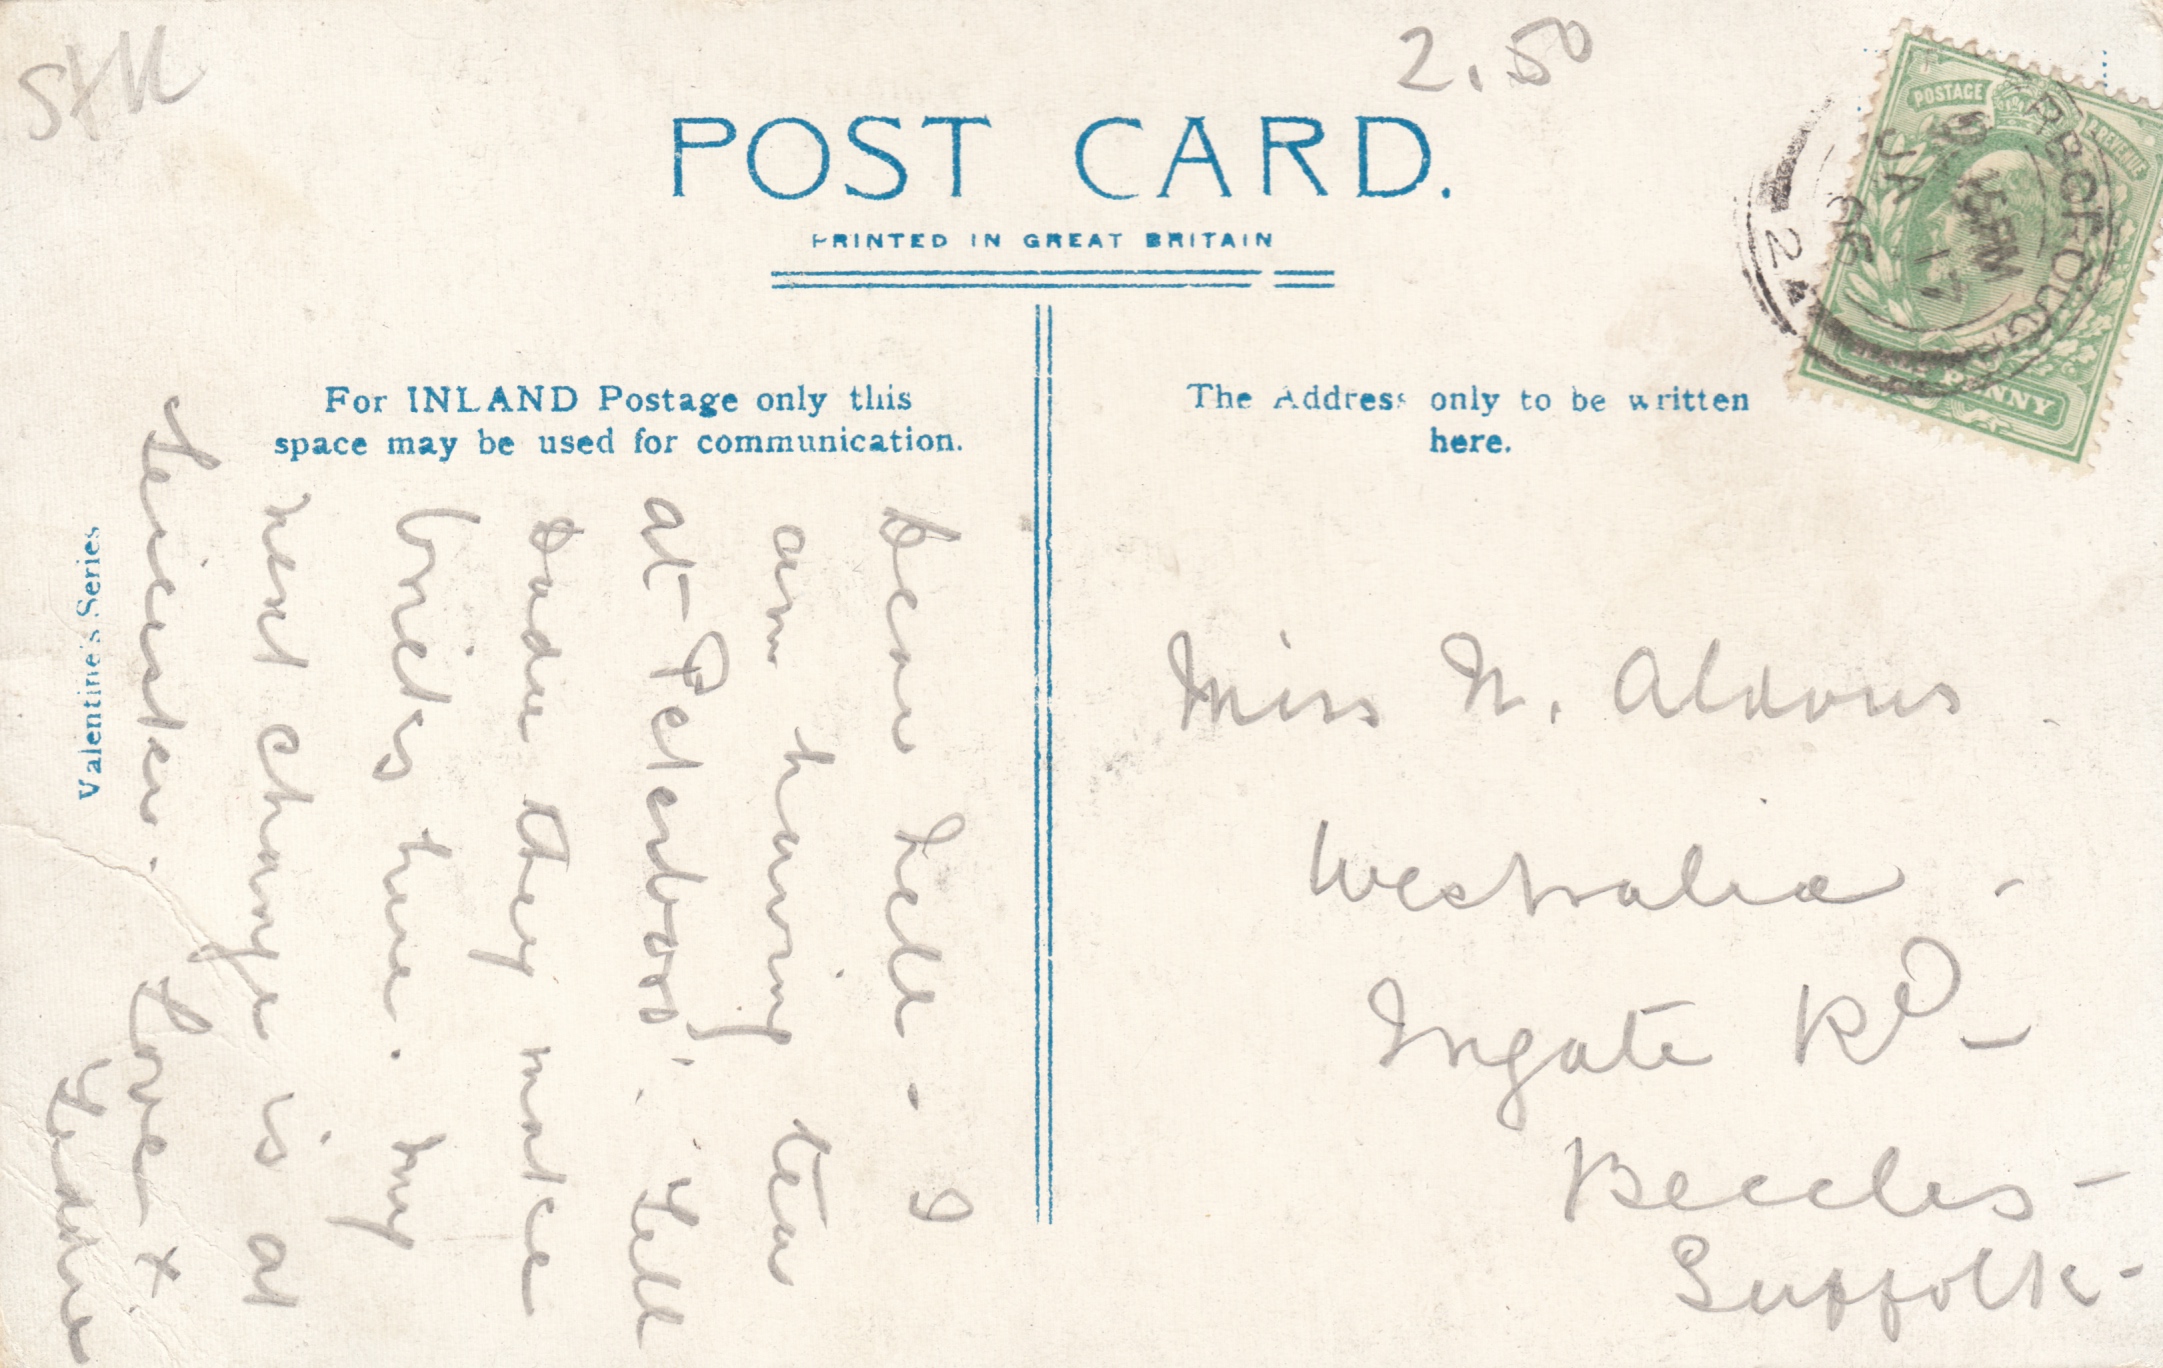 2.50
POST CARD.
PRINTED IN GREAT BRITAIN
For INLAND Postage only this
space may be used for communication.
The Address only to be written
here.
Valentine's Series
Dear Nell - I
am having tea
at Peterboro'. Tell
Dade they make
bricks here. My
next change is at
Leicester. Love x
Miss N. Aldous.
Westralia -
Ingate Rd -
Beccles -
Suffolk -
POSTAGE & REVENUE
PENNY
15 PM
JA 17
06
24